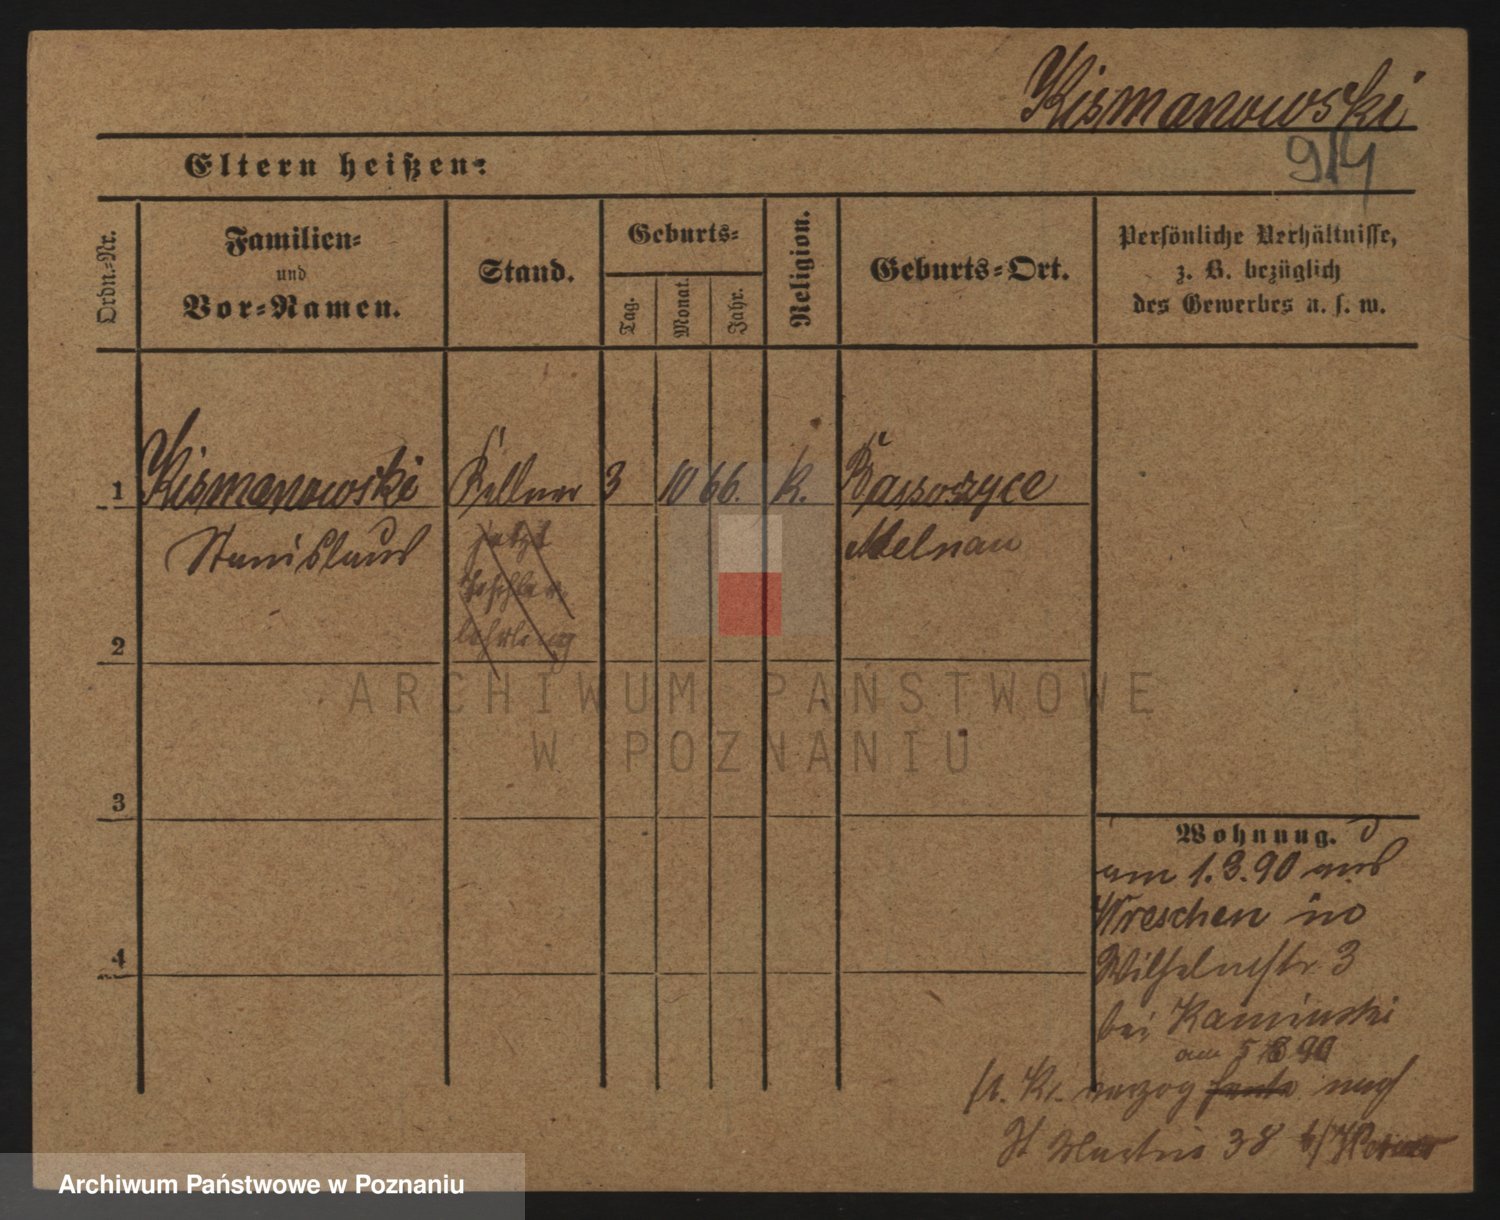 Kismanowski
914
Eltern heißen:
Ordn.-Nr.
Familien-
und
Vor-Namen.
Stand.
Geburts-
Tag.
Monat.
Jahr.
Religion.
Geburts-Ort.
Persönliche Verhältnisse,
z. B. bezüglich
des Gewerbes u. s. w.
1 Kismanowski Kellner 3 10 66. k.
Stanislaus Melnau
jetzt
lehrling
2
3
4
Wohnung.
am 1.3.90 aus
Wreschen in
Wilhelmstr. 3
bei Kaminski
am 5 90
verzog nach
St Martin 38
ARCHIWUM PAŃSTWOWE
W POZNANIU
Archiwum Państwowe w Poznaniu